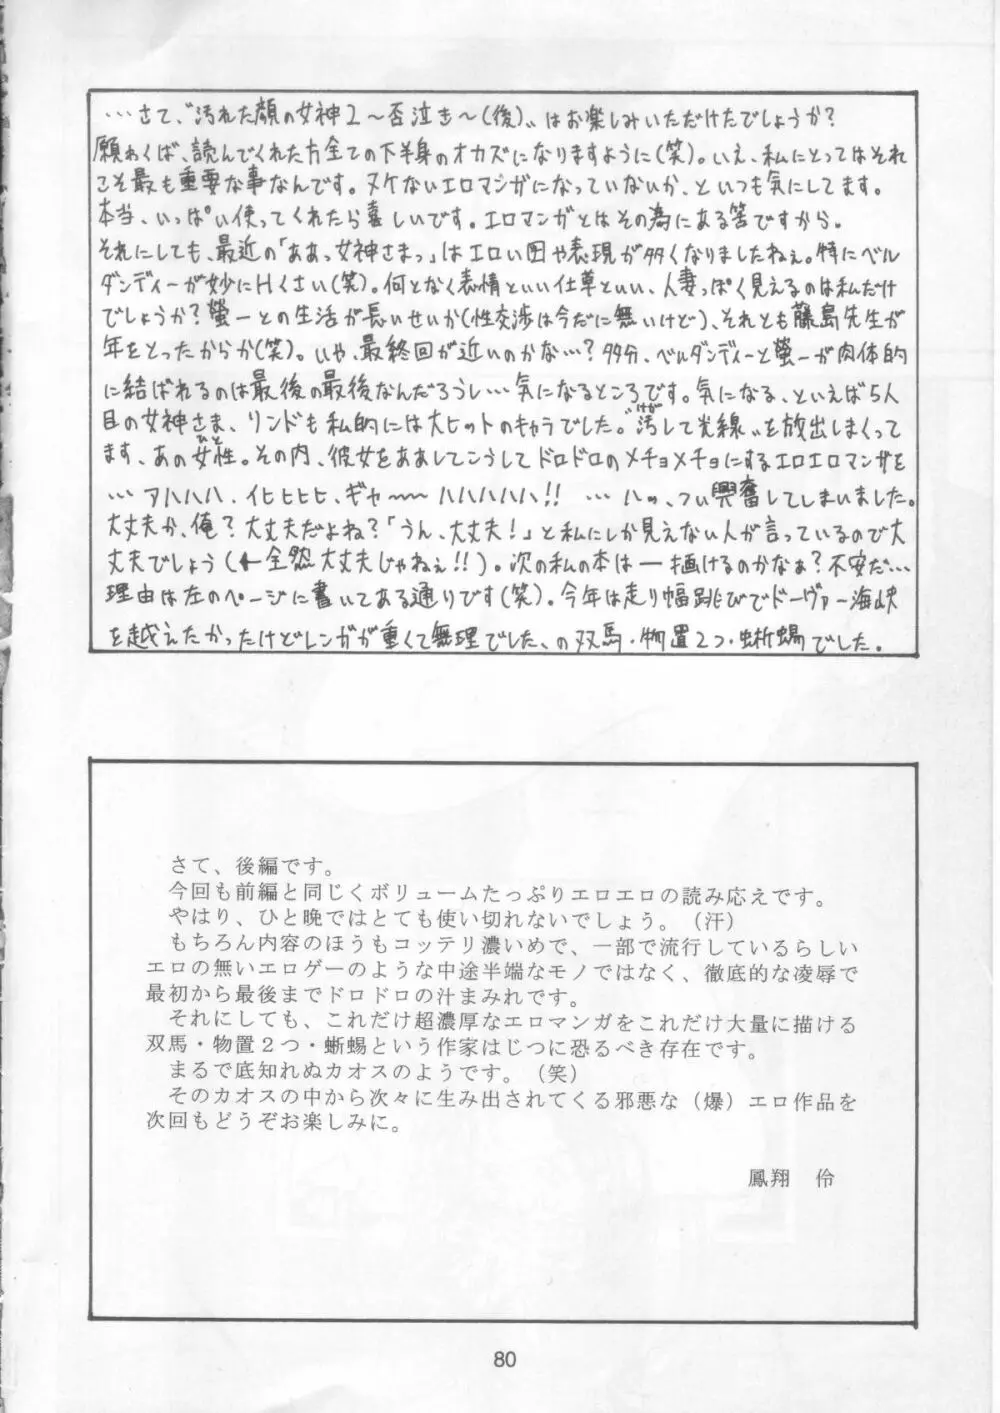 …さて、〝汚れた顔の女神2～否泣き～(後)〟はお楽しみいただけたでしょうか?
願わくば、読んでくれた方全ての下半身のオカズになりますように(笑)。いえ、私にとってはそれ
こそ最も重要な事なんです。ヌケないエロマンガになっていないか、といつも気にしてます。
本当、いっぱい使ってくれたら喜しいです。エロマンガとはその為にある筈ですから。
それにしても、最近の「ああっ女神さまっ」はエロい図や表現が多くなりましたねぇ。特にベル
ダンディーが妙にHくさい(笑)。何となく表情といい仕草といい、人妻っぽく見えるのは私だけ
でしょうか?螢一との生活が長いせいか(性交渉は今だに無いけど)、それとも藤島先生が
年をとったからか(笑)。いや、最終回が近いのかな…?多分、ベルダンディーと螢一が肉体的
に結ばれるのは最後の最後なんだろうし…気になるところです。気になる、といえば5人
目の女神さま、リンドも私的には大ヒットのキャラでした。〝汚(けが)して光線〟を放出しまくって
ます、あの女性(ひと)。その内、彼女をああしてこうしてドロドロのメチョメチョにするエロエロマンガを
…アハハハ、イヒヒヒヒ、ギャ～～ハハハハハ!! …ハッ、つい興奮してしまいました。
大丈夫か、俺?大丈夫だよね?「うん、大丈夫!」と私にしか見えない人が言っているので大
丈夫でしょう(←全然大丈夫じゃねぇ!!)。次の私の本は一描けるのかなぁ?不安だ…
理由は左のページに書いてある通りです(笑)。今年は走り幅跳びでドーヴァー海峡
を越えたかったけどレンガが重くて無理でした、の双馬・物置2つ・蜥蜴でした。
さて、後編です。
今回も前編と同じくボリュームたっぷりエロエロの読み応えです。
やはり、ひと晩ではとても使い切れないでしょう。（汗）
もちろん内容のほうもコッテリ濃いめで、一部で流行しているらしい
エロの無いエロゲーのような中途半端なモノではなく、徹底的な凌辱で
最初から最後までドロドロの汁まみれです。
それにしても、これだけ超濃厚なエロマンガをこれだけ大量に描ける
双馬・物置２つ・蜥蜴という作家はじつに恐るべき存在です。
まるで底知れぬカオスのようです。（笑）
そのカオスの中から次々に生み出されてくる邪悪な（爆）エロ作品を
次回もどうぞお楽しみに。
鳳翔　伶
80